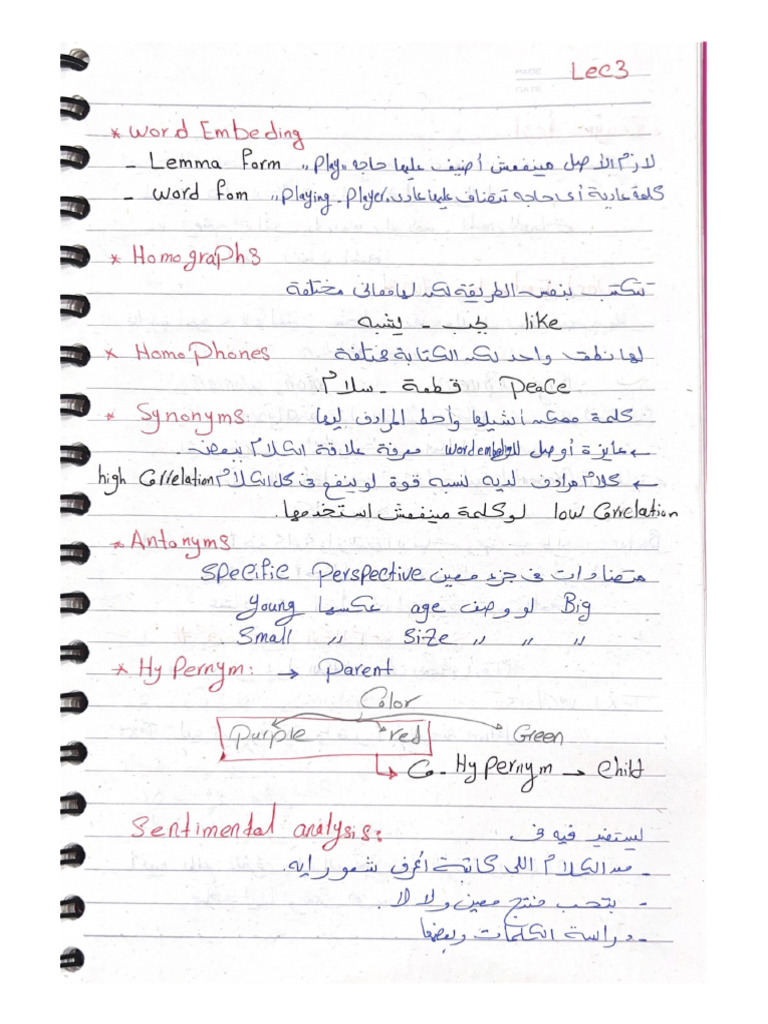 Lec3
* Word Embeding
- Lemma Form ,, Play ,, لازم الأصل مينفعش أضيف عليها حاجه
- Word Fom ,, Playing - Player ,, كلمة عادية أى حاجه تتضاف عليها عادى
* Homographs
تتكتب بنفس الطريقة لكن لها معانى مختلفة
like يحب - يشبه
* HomoPhones لها نطق واحد لكن الكتابة مختلفة
Peace قطعة - سلام
* Synonyms كلمة ممكن أشيلها وأحط المرادف ليها
← عايزة أوصل word embedding معرفة علاقة الكلام ببعضه.
← كلام مرادف لديه نسبه قوة لو ينفع فى كل الكلام high Correlation
low Correlation لو كلمة مينفعش استخدمها.
* Antonyms
متضادات فى جزء معين Specific Perspective
Big لو وصف age عكسها young
,, ,, ,, Size ,, Small
* Hy Pernym: → Parent
Color
Purple red Green
Co- Hy Pernym → Child
Sentimental analysis: ليستفيد فيه فى
- من الكلام اللى كاتبة أعرف شعور رايه.
- بتحب منتج معين ولا لا.
- دراسة الكلمات وبعضها